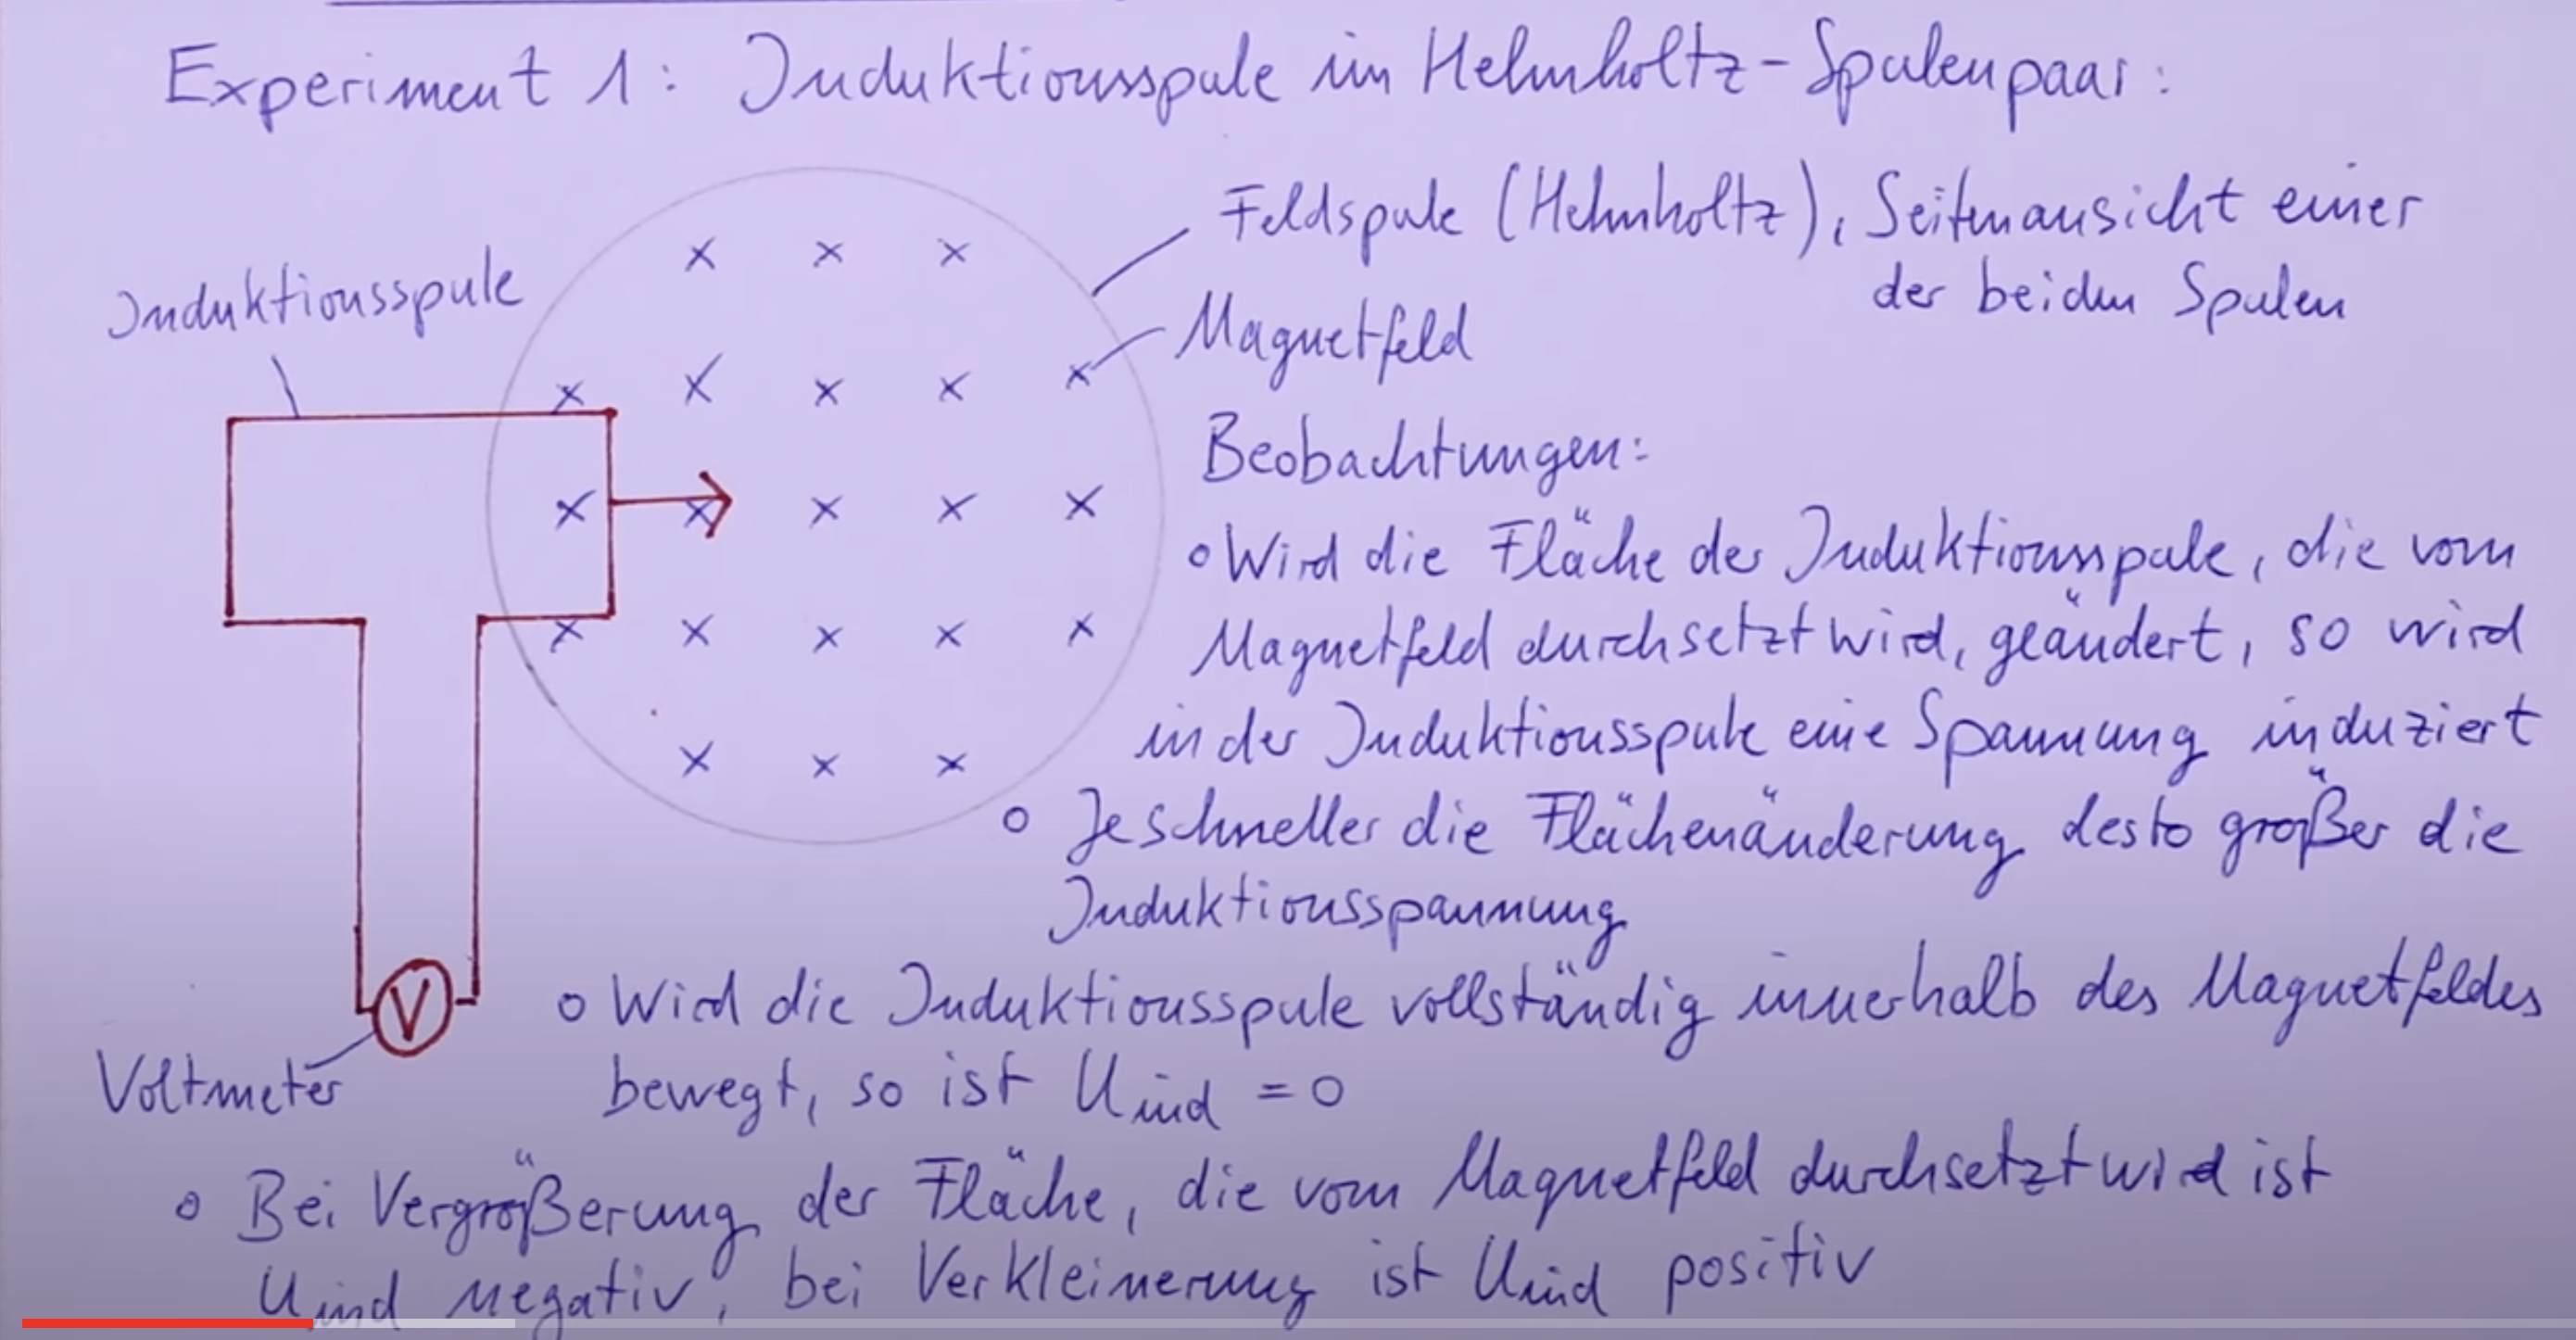 Experiment 1: Induktionsspule im Helmholtz-Spulenpaar:
Feldspule (Helmholtz), Seitenansicht einer
der beiden Spulen
Induktionsspule
Magnetfeld
Beobachtungen:
o Wird die Fläche der Induktionsspule, die vom
Magnetfeld durchsetzt wird, geändert, so wird
in der Induktionsspule eine Spannung induziert
o Je schneller die Flächenänderung desto größer die
Induktionsspannung
o Wird die Induktionsspule vollständig innerhalb des Magnetfeldes
bewegt, so ist Uind = 0
V
Voltmeter
o Bei Vergrößerung der Fläche, die vom Magnetfeld durchsetzt wird ist
Uind negativ, bei Verkleinerung ist Uind positiv